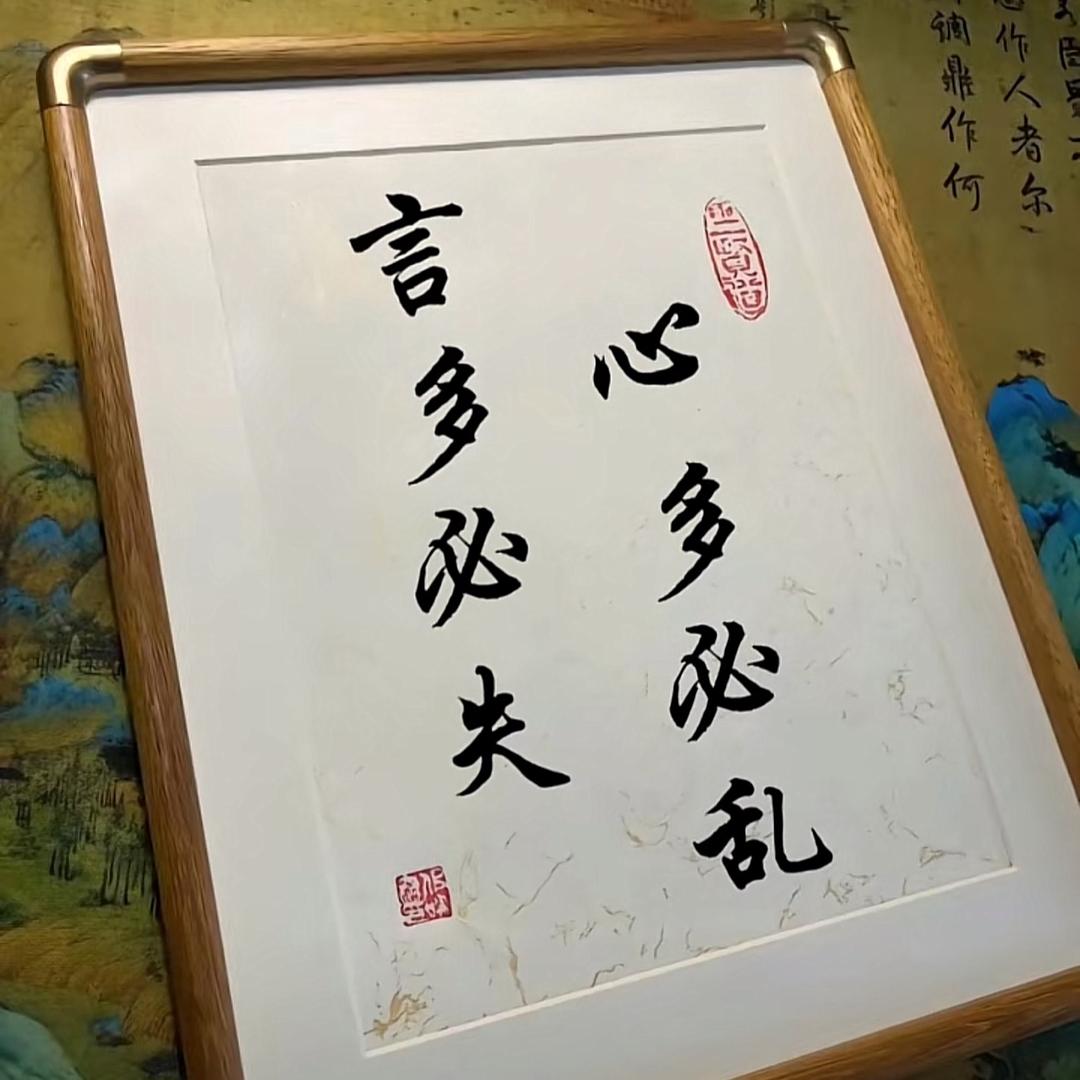 心多必乱
言多必失
作人者尔
鼎作何